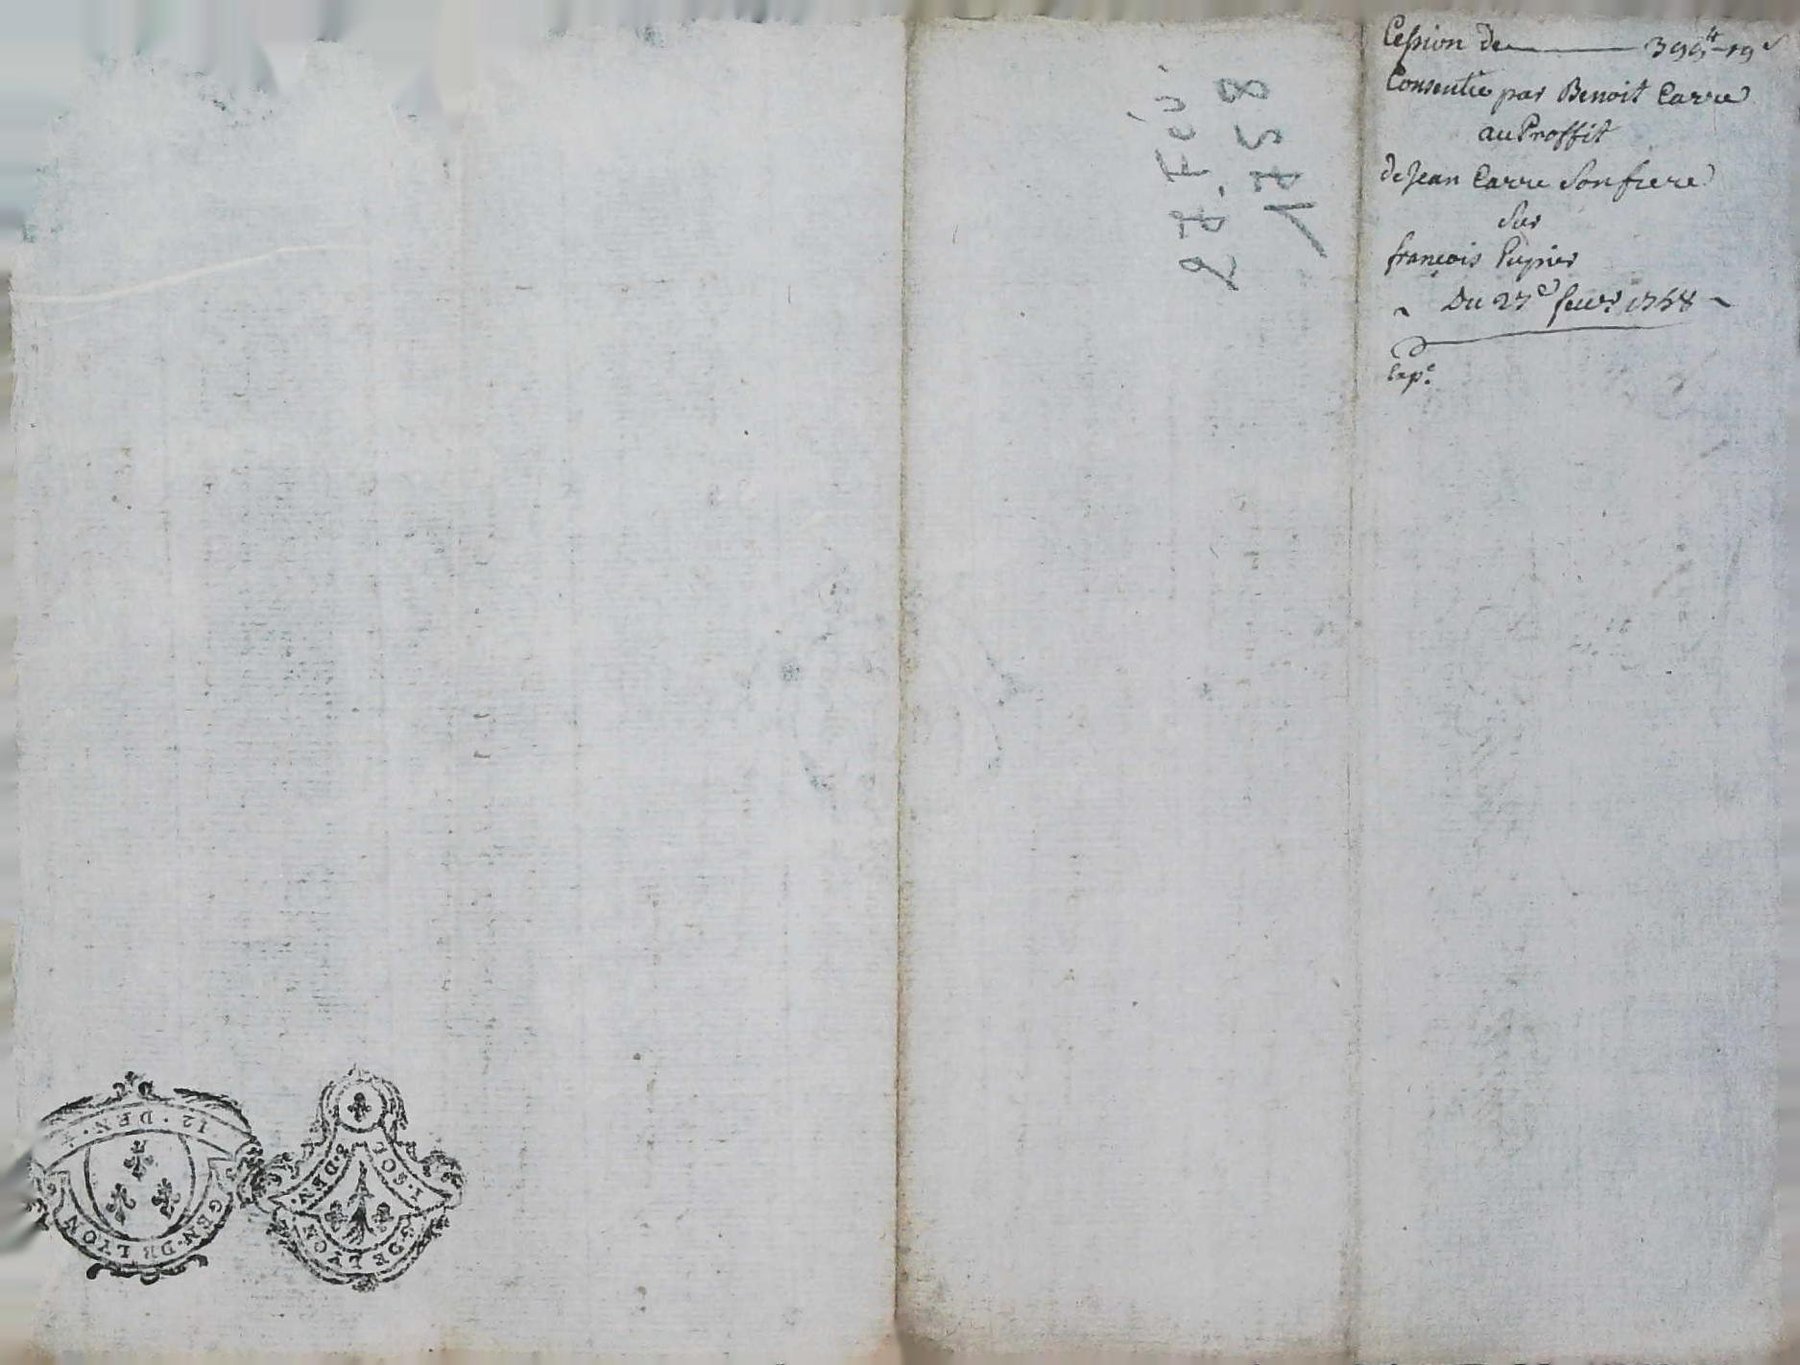 Cession de ——— 399ᵗᵗ 19ˢ
Consentie par Benoit Carre
au Proffit
de Jean Carre Son frere
Sur
françois Pupier
~ Du 27ᵉ feuʳ 1758 ~
Expᵉ.
27. Fév.
1758
12 . DEN .
GEN . DE LYON
I . SOL
8 . DEN .
G . DE LYON